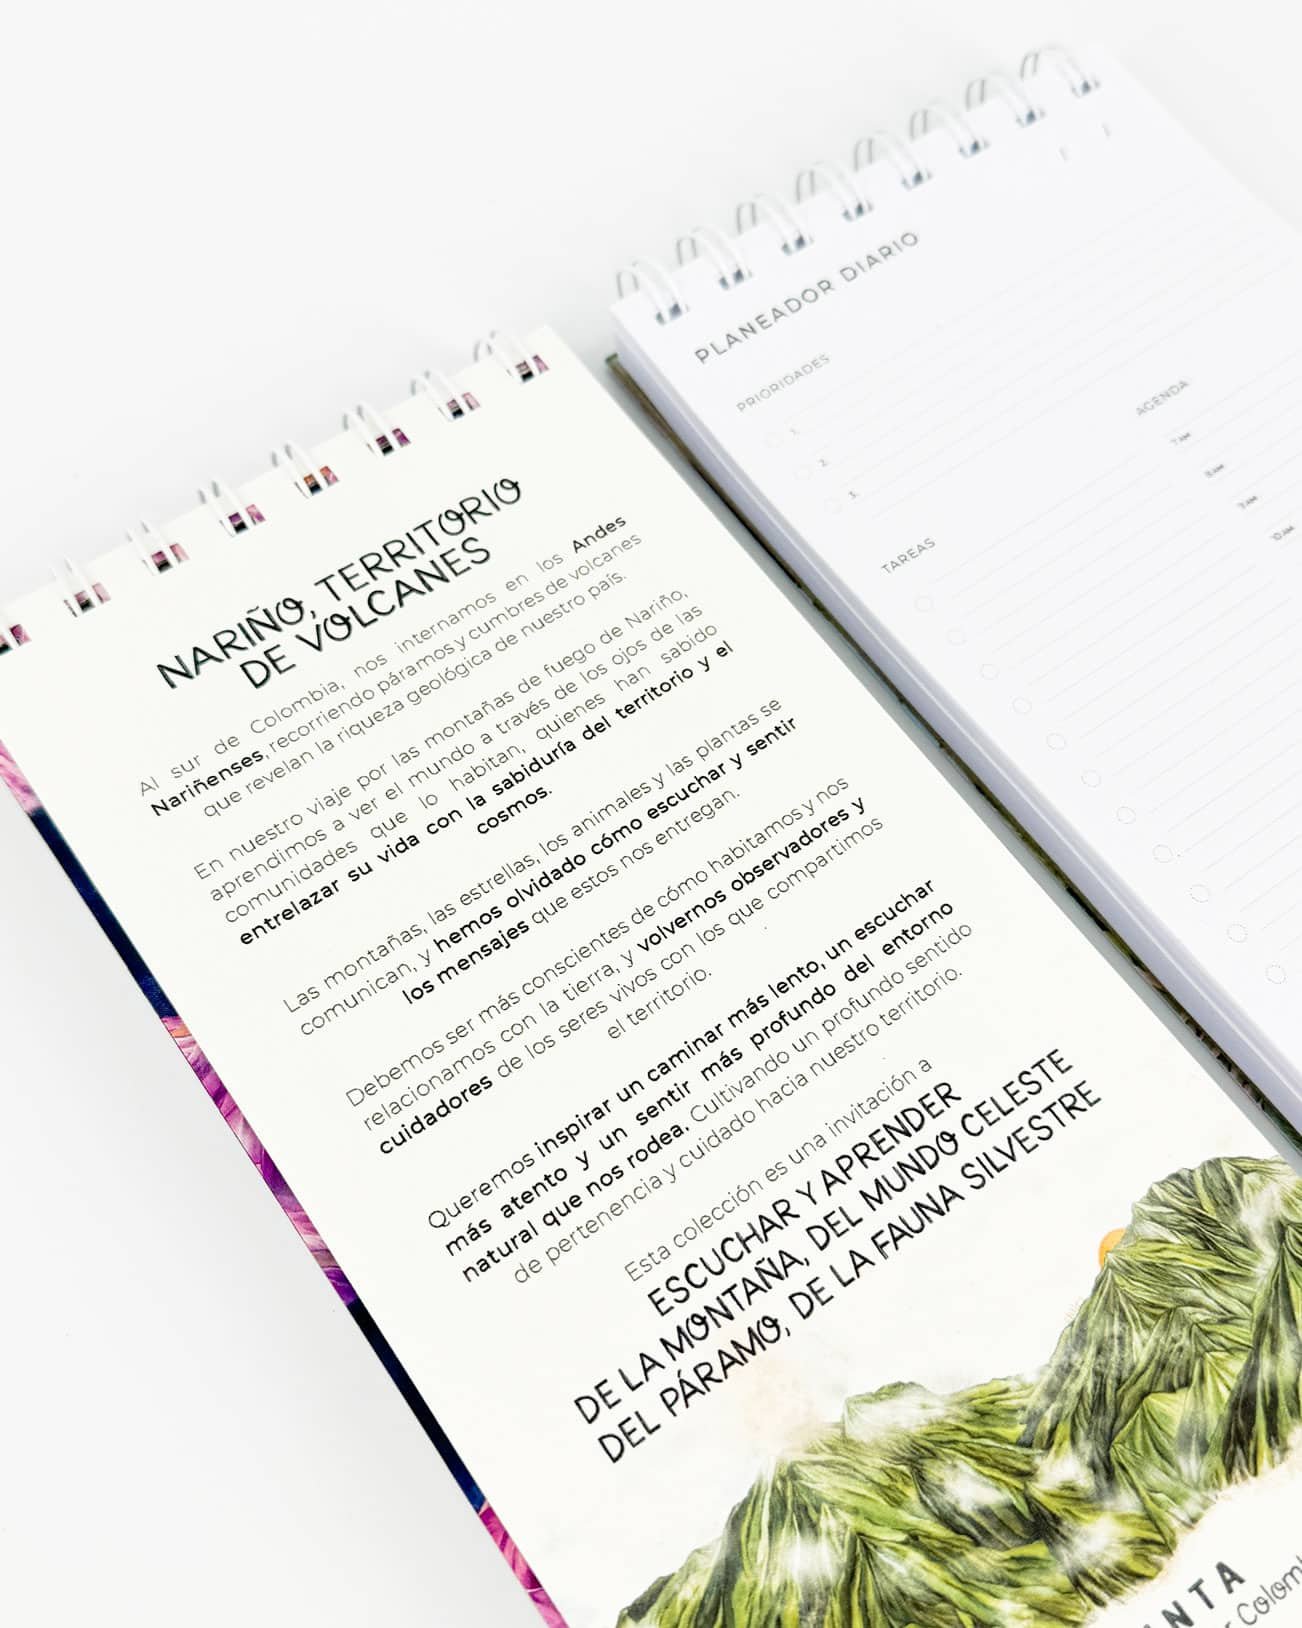 NARIÑO, TERRITORIO
DE VOLCANES
Al sur de Colombia, nos internamos en los Andes
Nariñenses, recorriendo páramos y cumbres de volcanes
que revelan la riqueza geológica de nuestro país.
En nuestro viaje por las montañas de fuego de Nariño,
aprendimos a ver el mundo a través de los ojos de las
comunidades que lo habitan, quienes han sabido
entrelazar su vida con la sabiduría del territorio y el
cosmos.
Las montañas, las estrellas, los animales y las plantas se
comunican, y hemos olvidado cómo escuchar y sentir
los mensajes que estos nos entregan.
Debemos ser más conscientes de cómo habitamos y nos
relacionamos con la tierra, y volvernos observadores y
cuidadores de los seres vivos con los que compartimos
el territorio.
Queremos inspirar un caminar más lento, un escuchar
más atento y un sentir más profundo del entorno
natural que nos rodea. Cultivando un profundo sentido
de pertenencia y cuidado hacia nuestro territorio.
Esta colección es una invitación a
ESCUCHAR Y APRENDER
DE LA MONTAÑA, DEL MUNDO CELESTE
DEL PÁRAMO, DE LA FAUNA SILVESTRE
PLANEADOR DIARIO
PRIORIDADES
1.
2.
3.
TAREAS
AGENDA
7 AM
8 AM
9 AM
10 AM